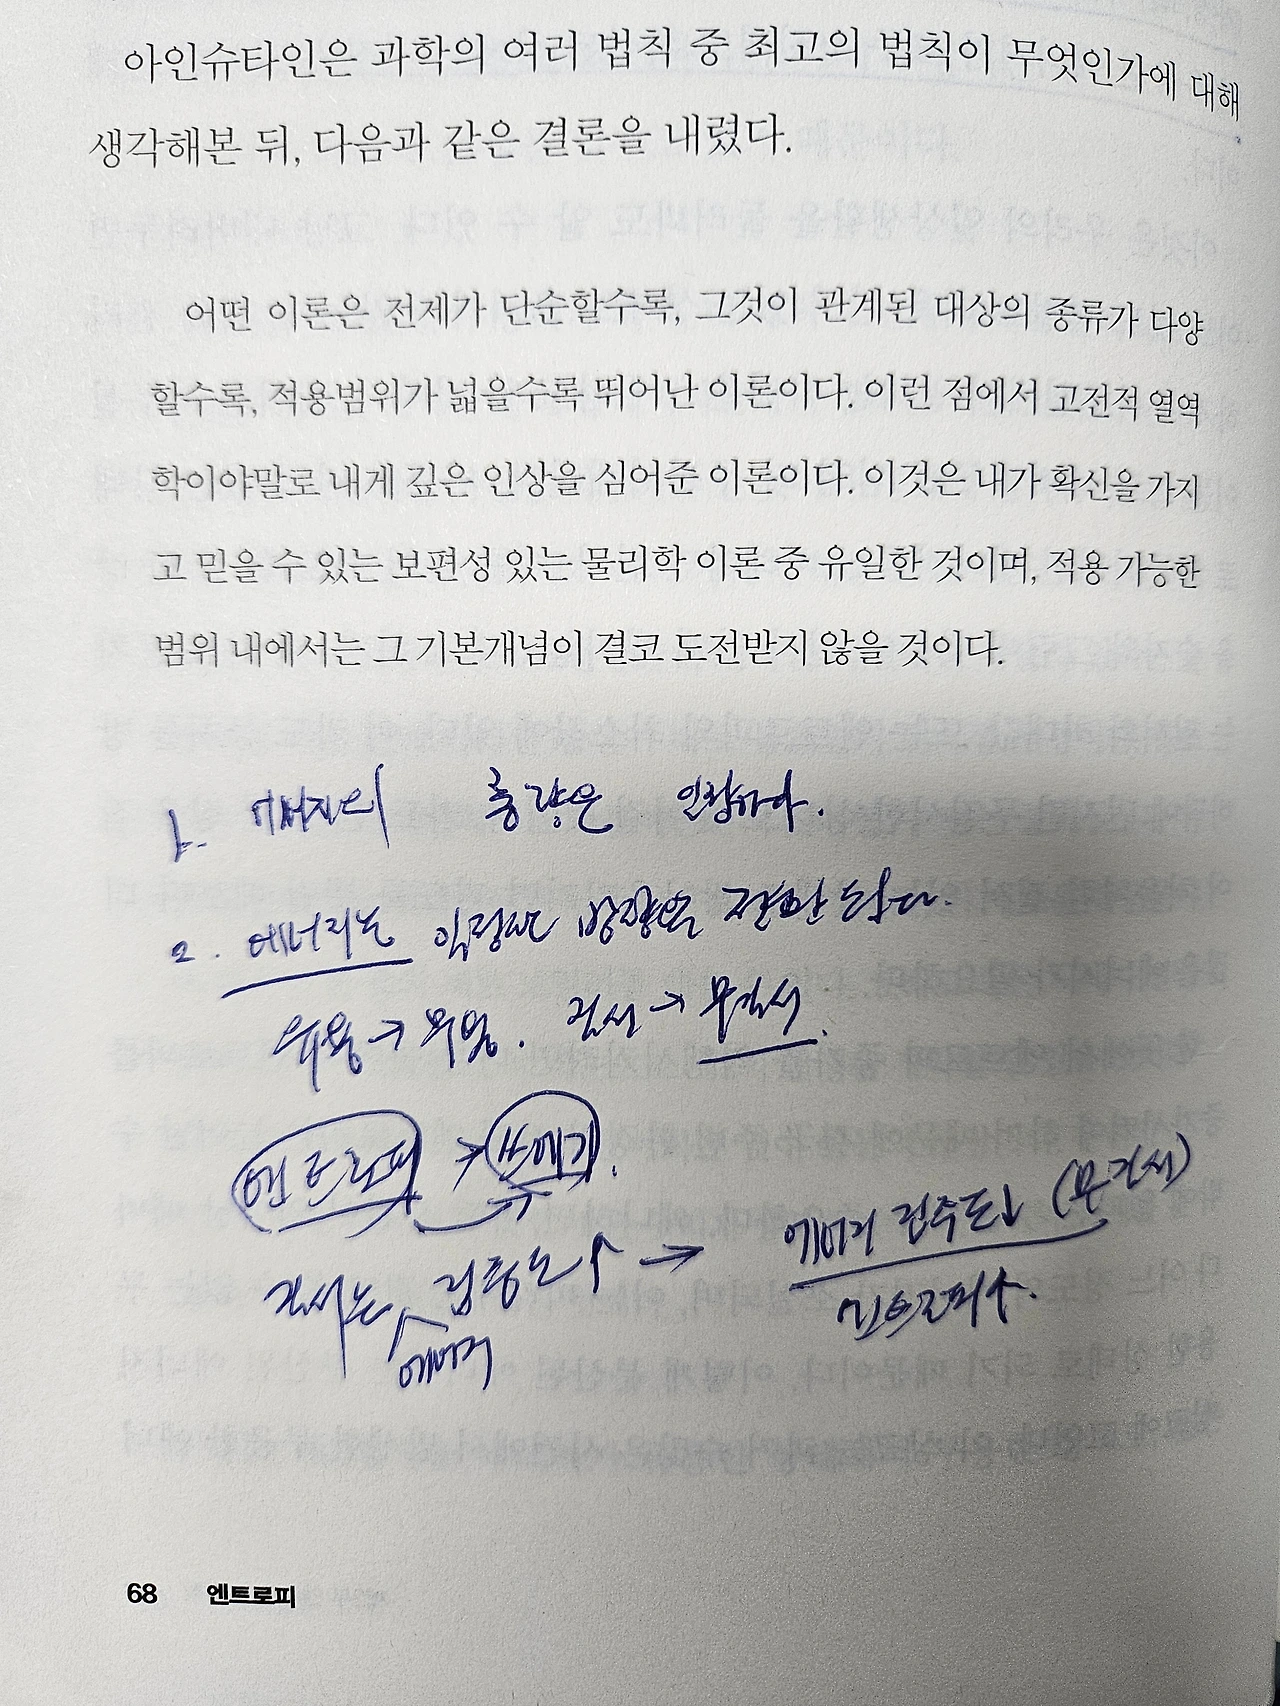 아인슈타인은 과학의 여러 법칙 중 최고의 법칙이 무엇인가에 대해
생각해본 뒤, 다음과 같은 결론을 내렸다.
어떤 이론은 전제가 단순할수록, 그것이 관계된 대상의 종류가 다양
할수록, 적용범위가 넓을수록 뛰어난 이론이다. 이런 점에서 고전적 열역
학이야말로 내게 깊은 인상을 심어준 이론이다. 이것은 내가 확신을 가지
고 믿을 수 있는 보편성 있는 물리학 이론 중 유일한 것이며, 적용 가능한
범위 내에서는 그 기본개념이 결코 도전받지 않을 것이다.
1. 에너지의 총량은 일정하다.
2. 에너지는 일정한 방향으로 전환된다.
유용 → 무용. 질서 → 무질서.
엔트로피 → 쓰레기.
질서는 집중도↑ → 에너지 집중도↓ (무질서)
에너지 엔트로피↑.
68 엔트로피